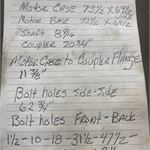 Motor Case 73½ X 69¼
Motor Base 72½ X 69½
Shaft 8⅞
Coupler 20¾"
Motor Case to Coupler Flange
11⅜"
Bolt holes Side-Side
62¾"
Bolt holes Front-Back
1½-10-18-31½-47½-